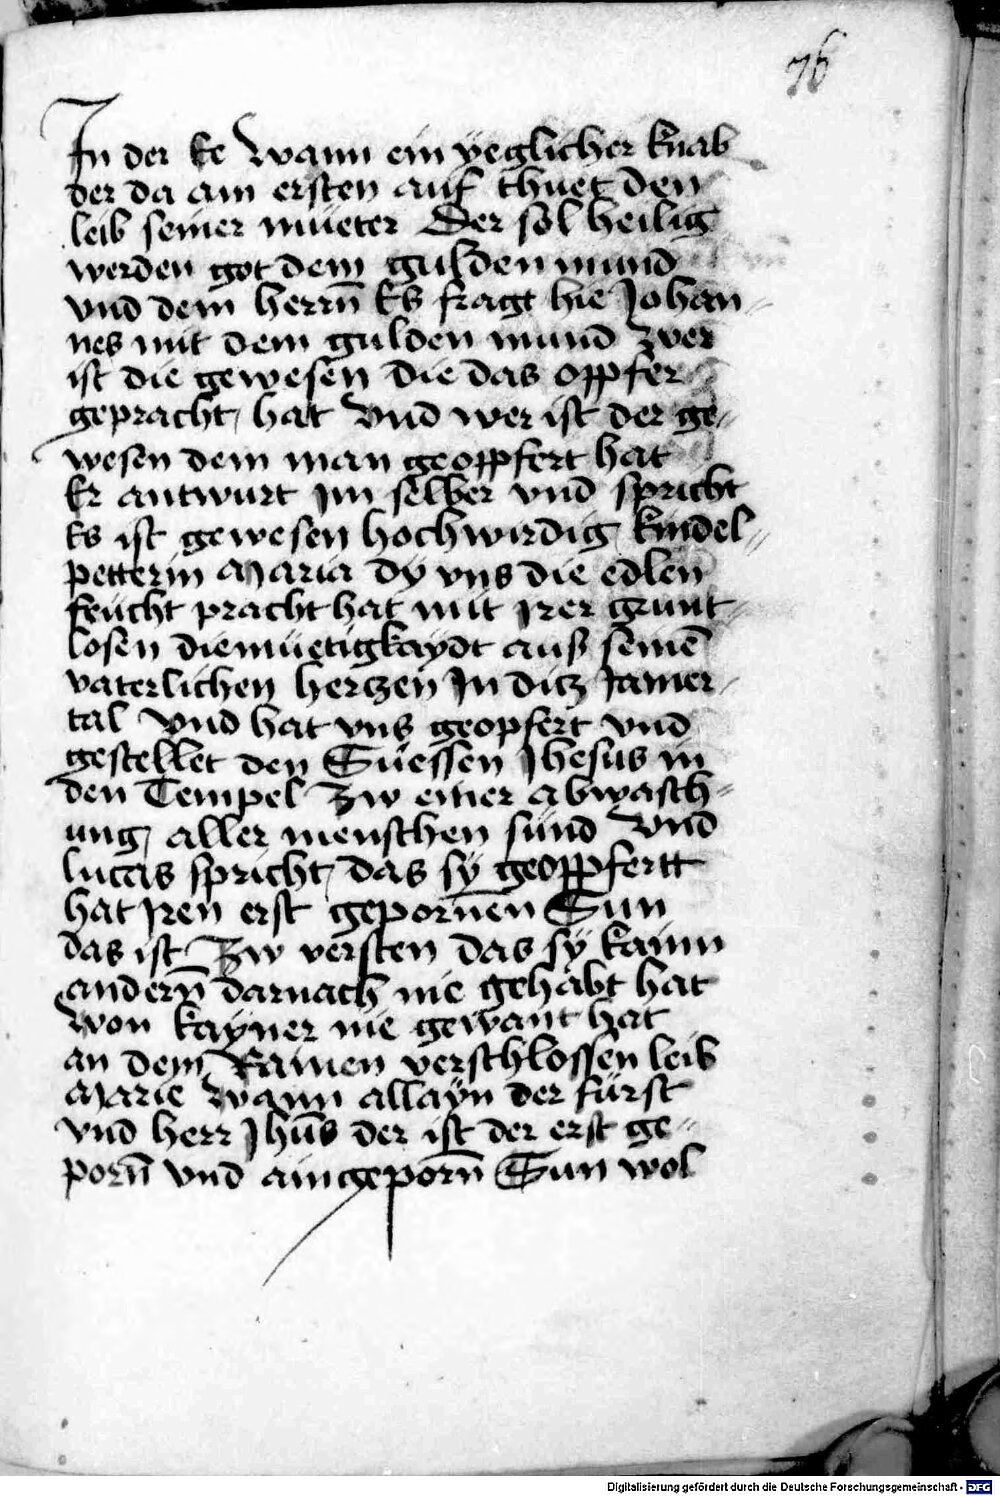 76
In der Ee Wann ein yeglicher knab
der da am ersten auf thuet den
leib seiner müeter Der sol heilig
werden got dem gulden mund
vnd dem herrn̄ Es fragt hie Johan-
nes mit dem gulden mund zwer
ist die gewesen die das oppfer
gepracht hat Vnd wer ist der ge-
wesen dem man geoppfert hat
Er antwurt Im selber vnd spricht
Es ist gewesen hochwirdig kindel-
petterin Maria dy vns die edlen
feücht pracht hat mit Irer grunt-
losen diemüetigkaydt auß seinē
vaterlichen hertzen In ditz Jamer-
tal Vnd hat vns geopfert vnd
gestellet den Süessen Jhesus in
den Tempel Zw einer abwasch-
ung aller menschen sünd Vnd
lucas spricht das sy geoppfertt
hat Iren erst geporn̄en Sun
das ist Zw versten das sÿ kainn
andern̄ darnach nie gehabt hat
Won kayner nie gewant hat
an dem Rainen verschlossen leib
Marie Wann allayn der fürst
vnd herr Jhūs der ist der erst ge-
porn̄ vnd aingeporn̄ Sun wol
Digitalisierung gefördert durch die Deutsche Forschungsgemeinschaft - DFG